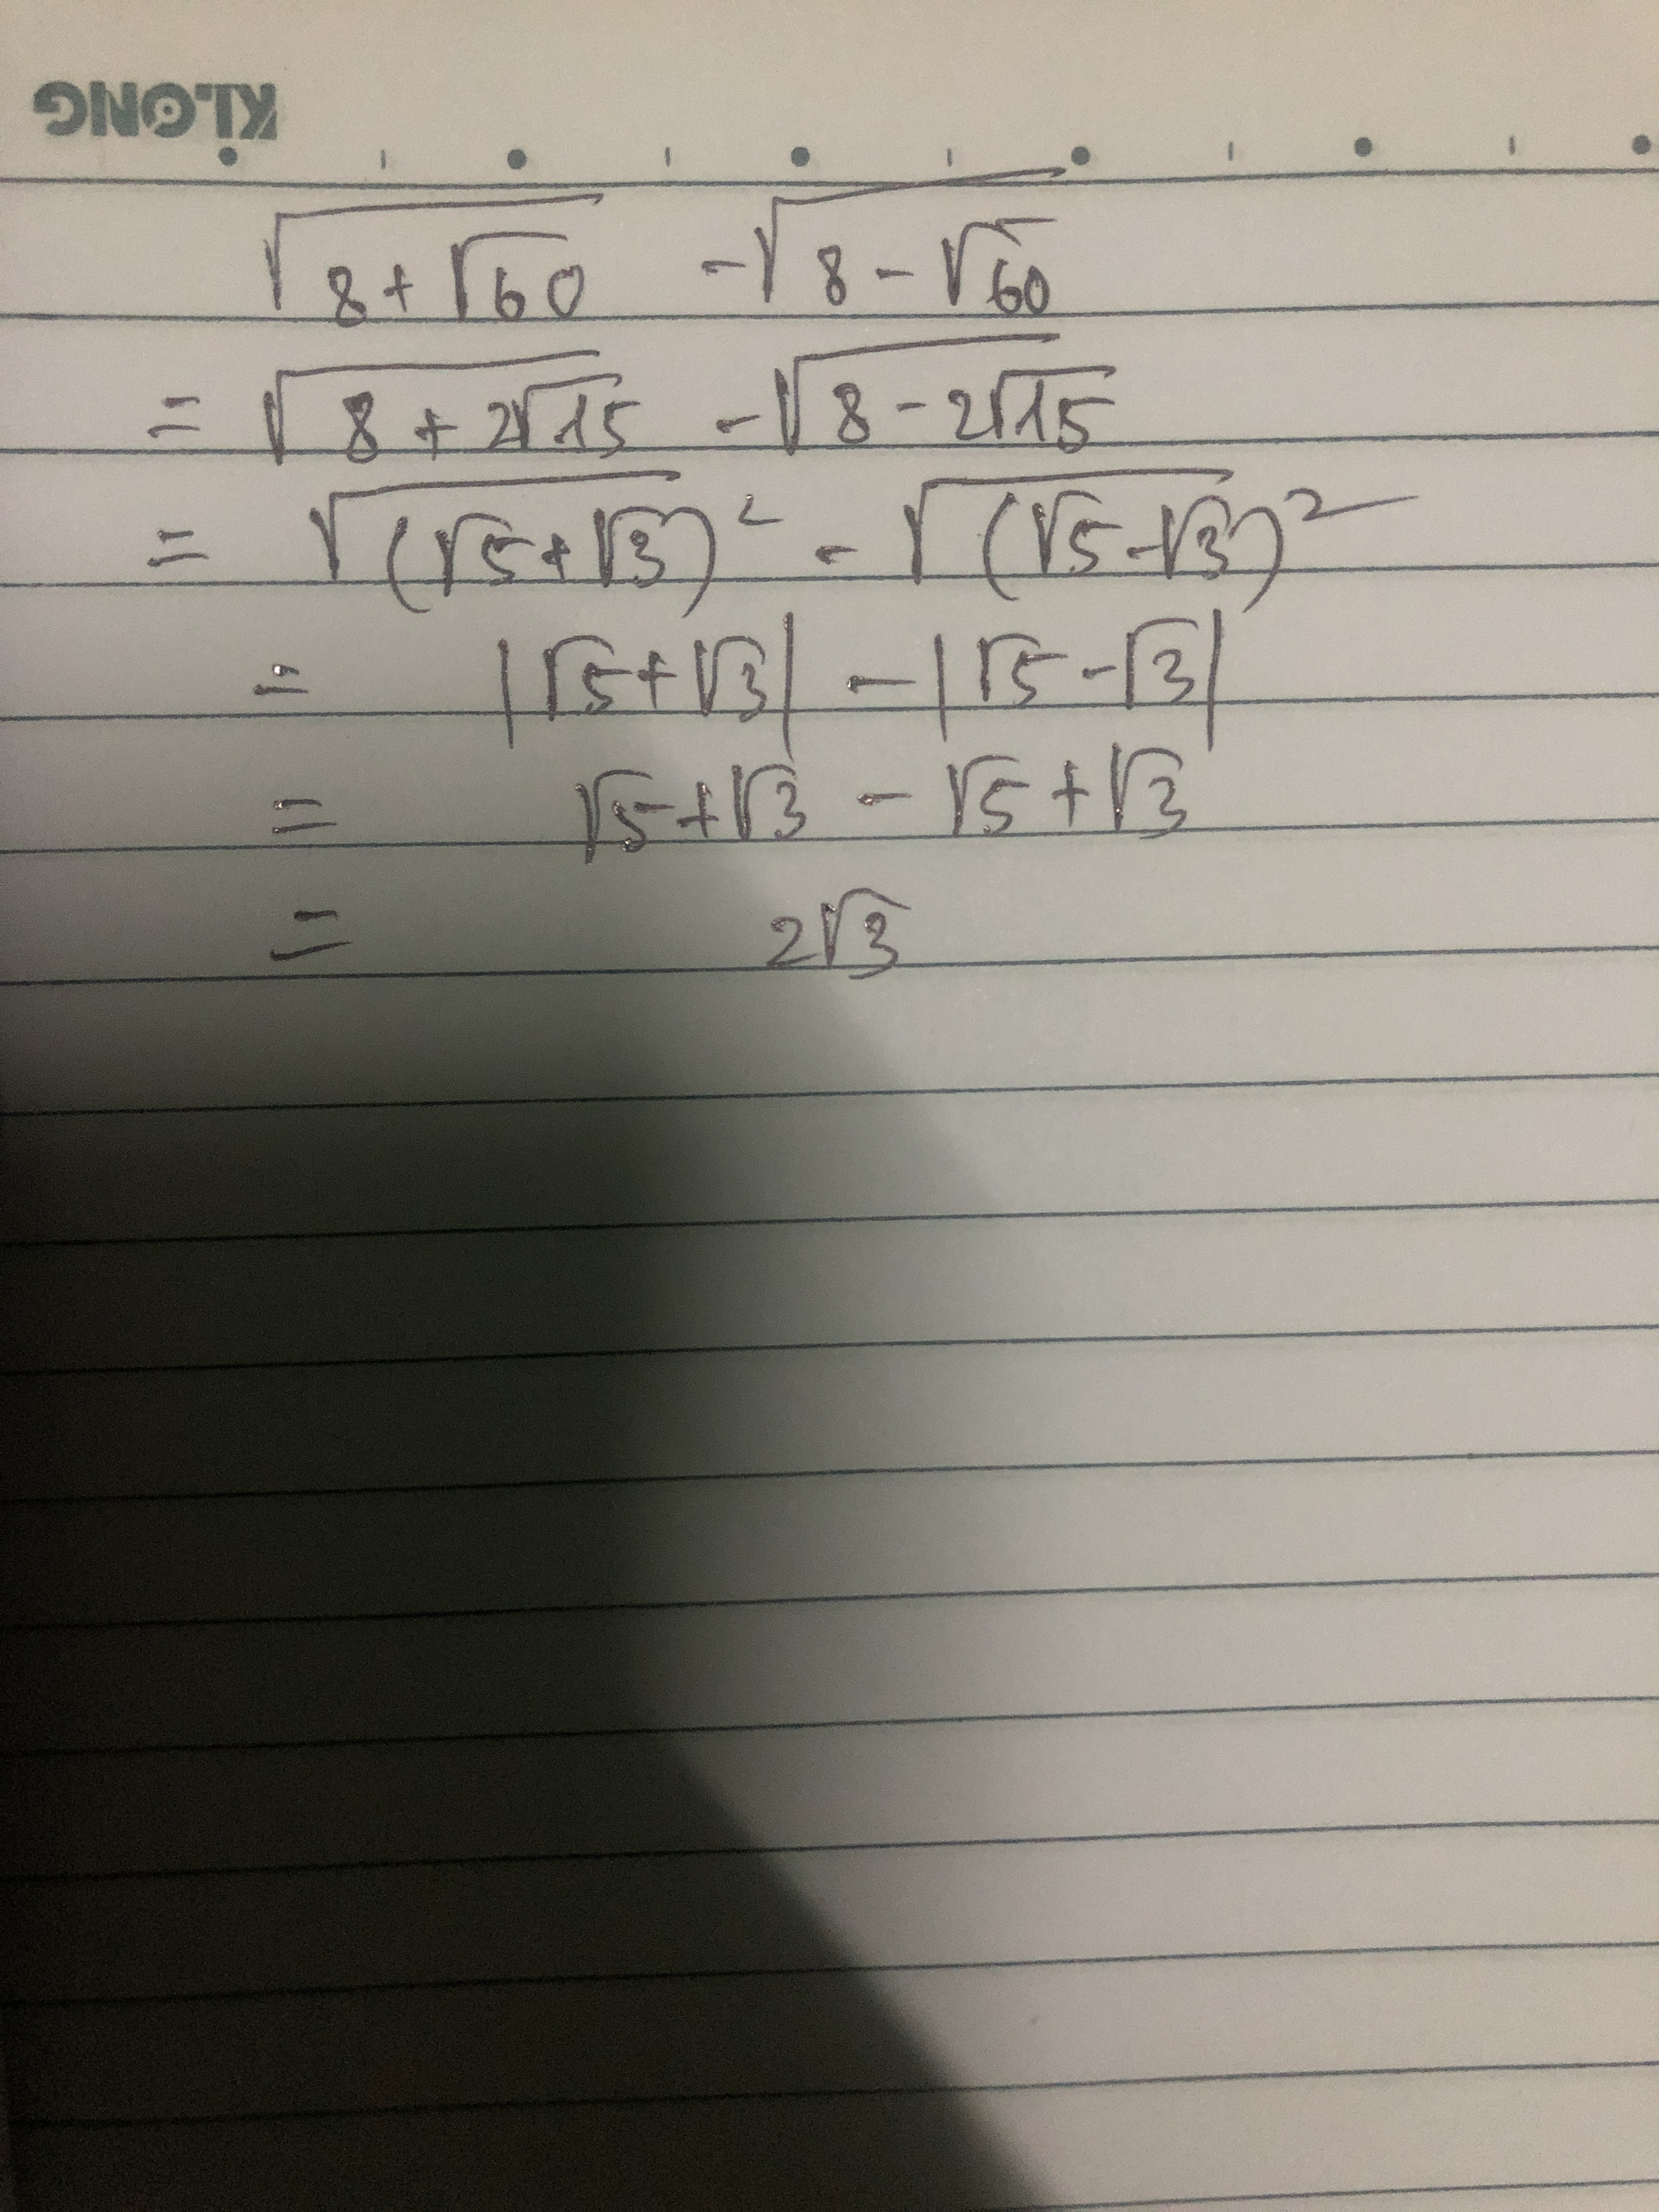 KLONG
√(8+√60) - √(8-√60)
= √(8+2√15) - √(8-2√15)
= √(√5+√3)² - √(√5-√3)²
= |√5+√3| - |√5-√3|
= √5+√3 - √5+√3
= 2√3